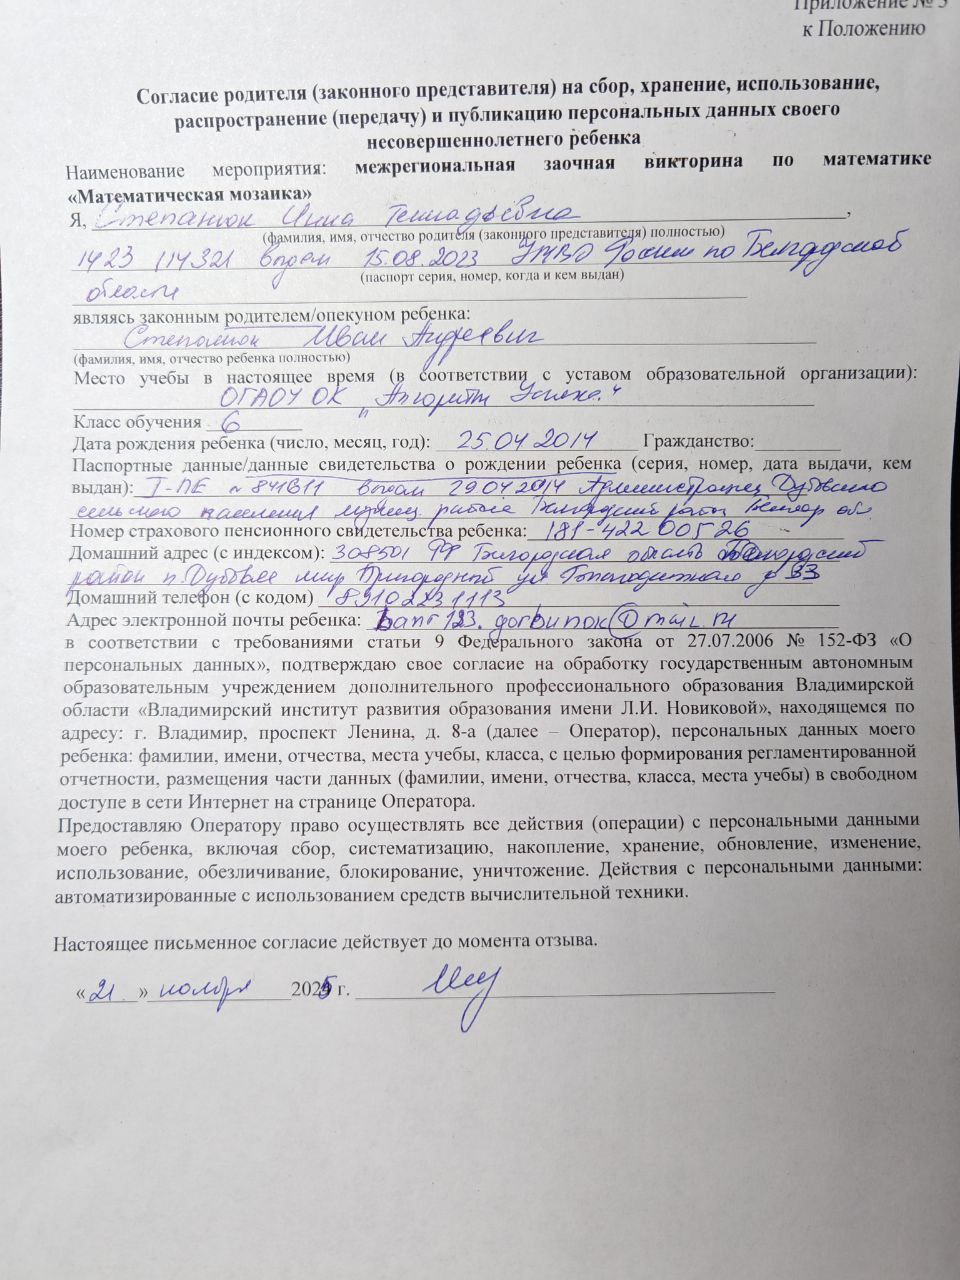 Приложение № 3
к Положению
Согласие родителя (законного представителя) на сбор, хранение, использование,
распространение (передачу) и публикацию персональных данных своего
несовершеннолетнего ребенка
Наименование мероприятия: межрегиональная заочная викторина по математике
«Математическая мозаика»
Я, Степанюк Инна Геннадьевна,
(фамилия, имя, отчество родителя (законного представителя) полностью)
1423 114321 выдан 15.08.2023 УМВД России по Белгородской
(паспорт серия, номер, когда и кем выдан)
области
являясь законным родителем/опекуном ребенка:
Степанюк Иван Андреевич
(фамилия, имя, отчество ребенка полностью)
Место учебы в настоящее время (в соответствии с уставом образовательной организации):
ОГАОУ ОК "Алгоритм Успеха"
Класс обучения 6
Дата рождения ребенка (число, месяц, год): 25.04 2014 Гражданство:
Паспортные данные/данные свидетельства о рождении ребенка (серия, номер, дата выдачи, кем
выдан): I-ЛЕ № 841611 выдан 29.04 2014 Администрацией Дубовского
сельского поселения муниц. района Белгородский район Белгор обл.
Номер страхового пенсионного свидетельства ребенка: 181-422 005 26
Домашний адрес (с индексом): 308501 РФ Белгородская область Белгородский
район п. Дубовое мкр Пригородный ул д 33
Домашний телефон (с кодом) 89102231113
Адрес электронной почты ребенка: @mail.ru
в соответствии с требованиями статьи 9 Федерального закона от 27.07.2006 № 152-ФЗ «О
персональных данных», подтверждаю свое согласие на обработку государственным автономным
образовательным учреждением дополнительного профессионального образования Владимирской
области «Владимирский институт развития образования имени Л.И. Новиковой», находящемся по
адресу: г. Владимир, проспект Ленина, д. 8-а (далее – Оператор), персональных данных моего
ребенка: фамилии, имени, отчества, места учебы, класса, с целью формирования регламентированной
отчетности, размещения части данных (фамилии, имени, отчества, класса, места учебы) в свободном
доступе в сети Интернет на странице Оператора.
Предоставляю Оператору право осуществлять все действия (операции) с персональными данными
моего ребенка, включая сбор, систематизацию, накопление, хранение, обновление, изменение,
использование, обезличивание, блокирование, уничтожение. Действия с персональными данными:
автоматизированные с использованием средств вычислительной техники.
Настоящее письменное согласие действует до момента отзыва.
«21» ноября 2025 г.